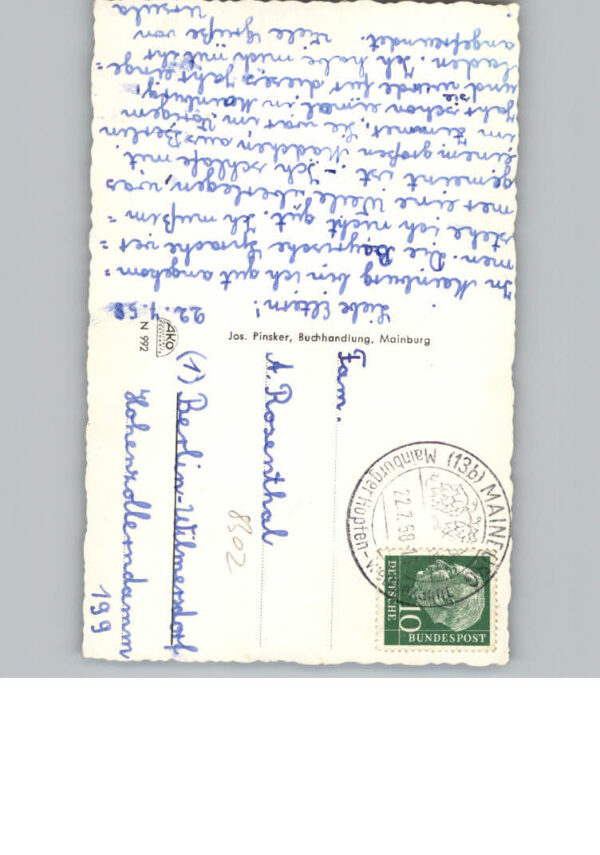 22.7.58
Liebe Eltern!
In Mainburg bin ich gut angekom=
men. Die Bayrische Sprache ver=
stehe ich nicht gut. Ich muß im=
mer eine Weile überlegen, was
gemeint ist. – Ich schlafe mit
einem großen Mädchen aus Berlin
im Zimmer. Sie war im vorigen
Jahr schon einmal in Mainburg,
und sie wurde für dieses Jahr einge=
laden. Ich habe mich mit ihr
angefreundet. Viele Grüße von
Ursula
Jos. Pinsker, Buchhandlung, Mainburg
Ako
N 992
Fam.
A. Rosenthal
(1) Berlin-Wilmersdorf
Hohenzollerndamm
199
8302
(13b) MAINBURG
Mainburger Hopfen-
22.7.58
10
DEUTSCHE
BUNDESPOST